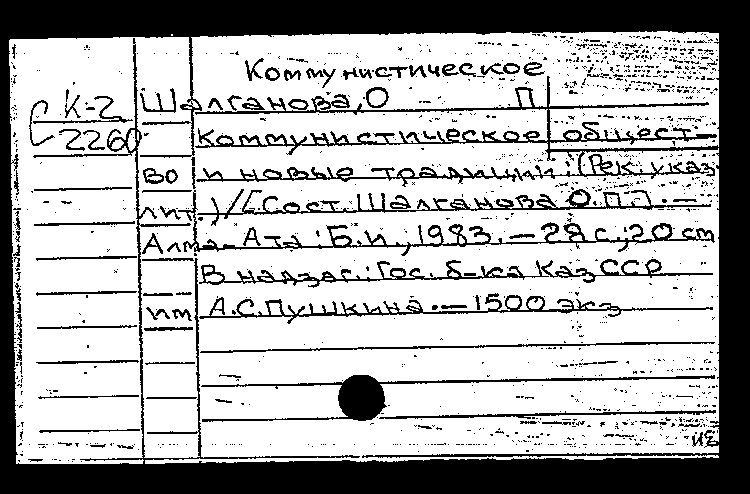 Коммунистическое
К-2
2260
Шалганова, О П
Коммунистическое общест-
во и новые традиции: (Рек. указ.
лит.)/[Сост. Шалганова О.П.]. —
Алма-Ата: Б.и., 1983. — 28 с.; 20 cm
В надзаг.: Гос. б-ка КазССР
им А.С.Пушкина. — 1500 экз